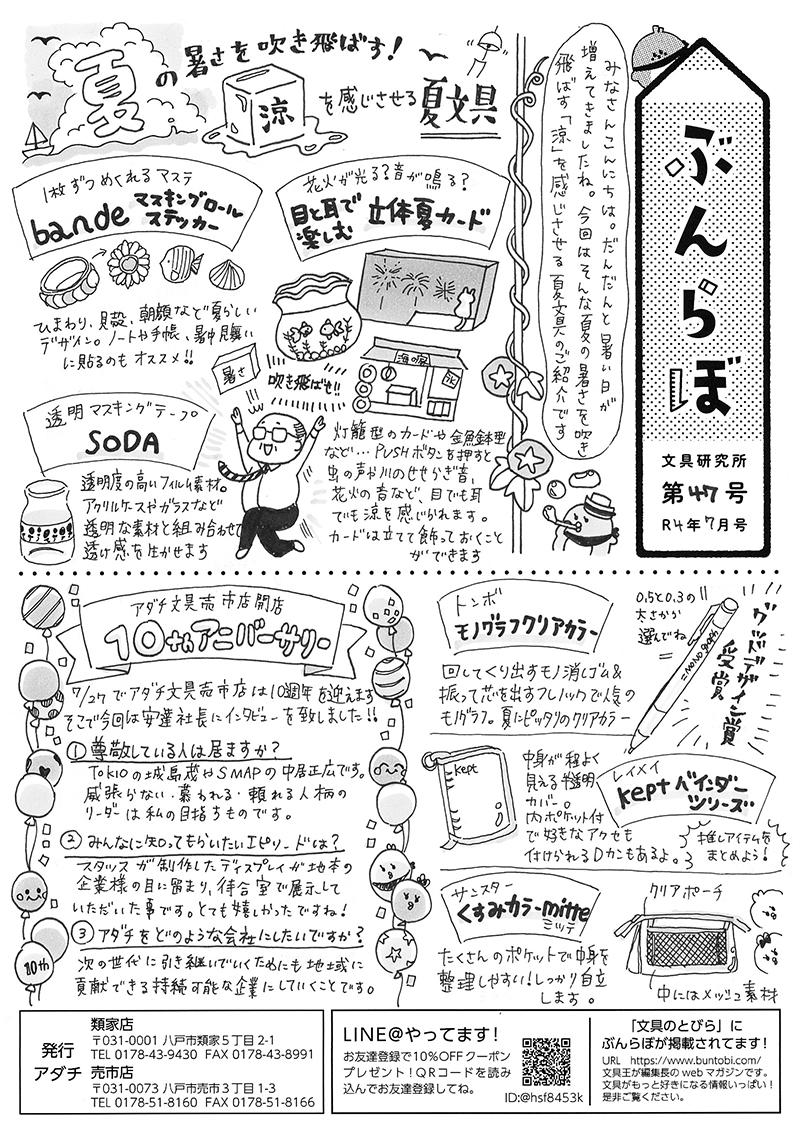 ぶんらぼ
文具研究所
第47号
R4年7月号
みなさんこんにちは。だんだんと暑い日が
増えてきましたね。今回はそんな夏の暑さを吹き
飛ばす「涼」を感じさせる夏文具のご紹介です
夏の暑さを吹き飛ばす!
涼を感じさせる夏文具
花火が光る?音が鳴る?
目と耳で
楽しむ
立体夏カード
海の家
氷
暑さ
吹き飛ばせ!!
灯籠型のカードや金魚鉢型
など…PUSHボタンを押すと
虫の声や川のせせらぎ音、
花火の音など、目でも耳
でも涼を感じられます。
カードは立てて飾っておくこと
ができます
1枚ずつめくれるマステ
bande マスキングロール
ステッカー
ひまわり、貝殻、朝顔など夏らしい
デザイン。ノートや手帳、暑中見舞い
に貼るのもオススメ!!
透明マスキングテープ
SODA
透明度の高いフィルム素材。
アクリルケースやガラスなど
透明な素材と組み合わせて
透け感を生かせます
アダチ文具売市店開店
10thアニバーサリー
7/27でアダチ文具売市店は10週年を迎えます
そこで今回は安達社長にインタビューを致しました!!
①尊敬している人は居ますか?
TOKIOの城島茂やSMAPの中居正広です。
威張らない・慕われる・頼れる人柄の
リーダーは私の目指すものです。
②みんなに知ってもらいたいエピソードは?
スタッフが制作したディスプレイが地本の
企業様の目に留まり、待合室で展示して
いただいた事です。とても嬉しかったですね!
③アダチをどのような会社にしたいですか?
次の世代に引き継いでいくためにも地域に
貢献できる持続可能な企業にしていくことです。
10th
トンボ
モノグラフクリアカラー
回してくり出すモノ消しゴム&
振って芯を出すフレノックで人気の
モノグラフ。夏にピッタリのクリアカラー
0.5と0.3の
太さから
選んでね
MONO graph
グッドデザイン賞
受賞
レイメイ
Keptバインダー
シリーズ
Kept
中身が程よく
見える半透明
カバー。
内ポケット付
で好きなアクセも
付けられるDカンもあるよ。
推しアイテムを
まとめよう!
サンスター
くすみカラーmitte
ミッテ
たくさんのポケットで中身を
整理しやすい!しっかり自立
します。
クリアポーチ
中にはメッシュ素材
発行
アダチ
類家店
〒031-0001 八戸市類家5丁目2-1
TEL 0178-43-9430 FAX 0178-43-8991
売市店
〒031-0073 八戸市売市3丁目1-3
TEL 0178-51-8160 FAX 0178-51-8166
LINE@やってます!
お友達登録で10%OFFクーポン
プレゼント!QRコードを読み
込んでお友達登録してね。
ID:@hsf8453k
「文具のとびら」に
ぶんらぼが掲載されてます!
URL https://www.buntobi.com/
文具王が編集長のwebマガジンです。
文具がもっと好きになる情報いっぱい!
是非ご覧ください。